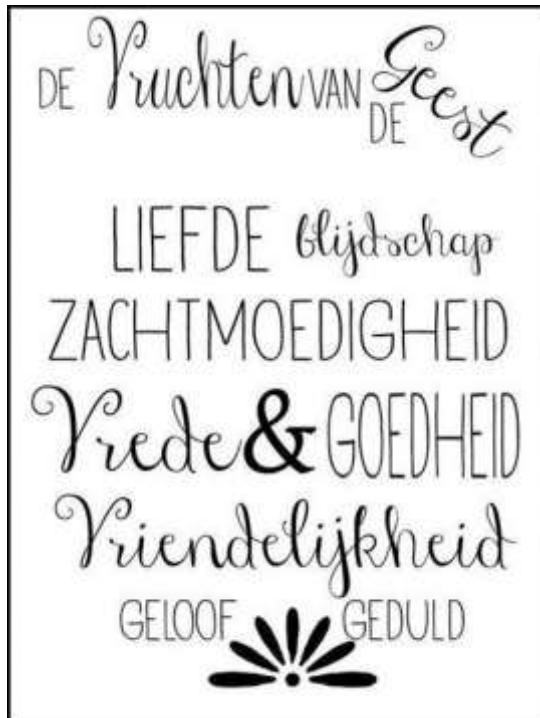 DE Vruchten VAN DE Geest
LIEFDE blijdschap
ZACHTMOEDIGHEID
Vrede & GOEDHEID
Vriendelijkheid
GELOOF GEDULD